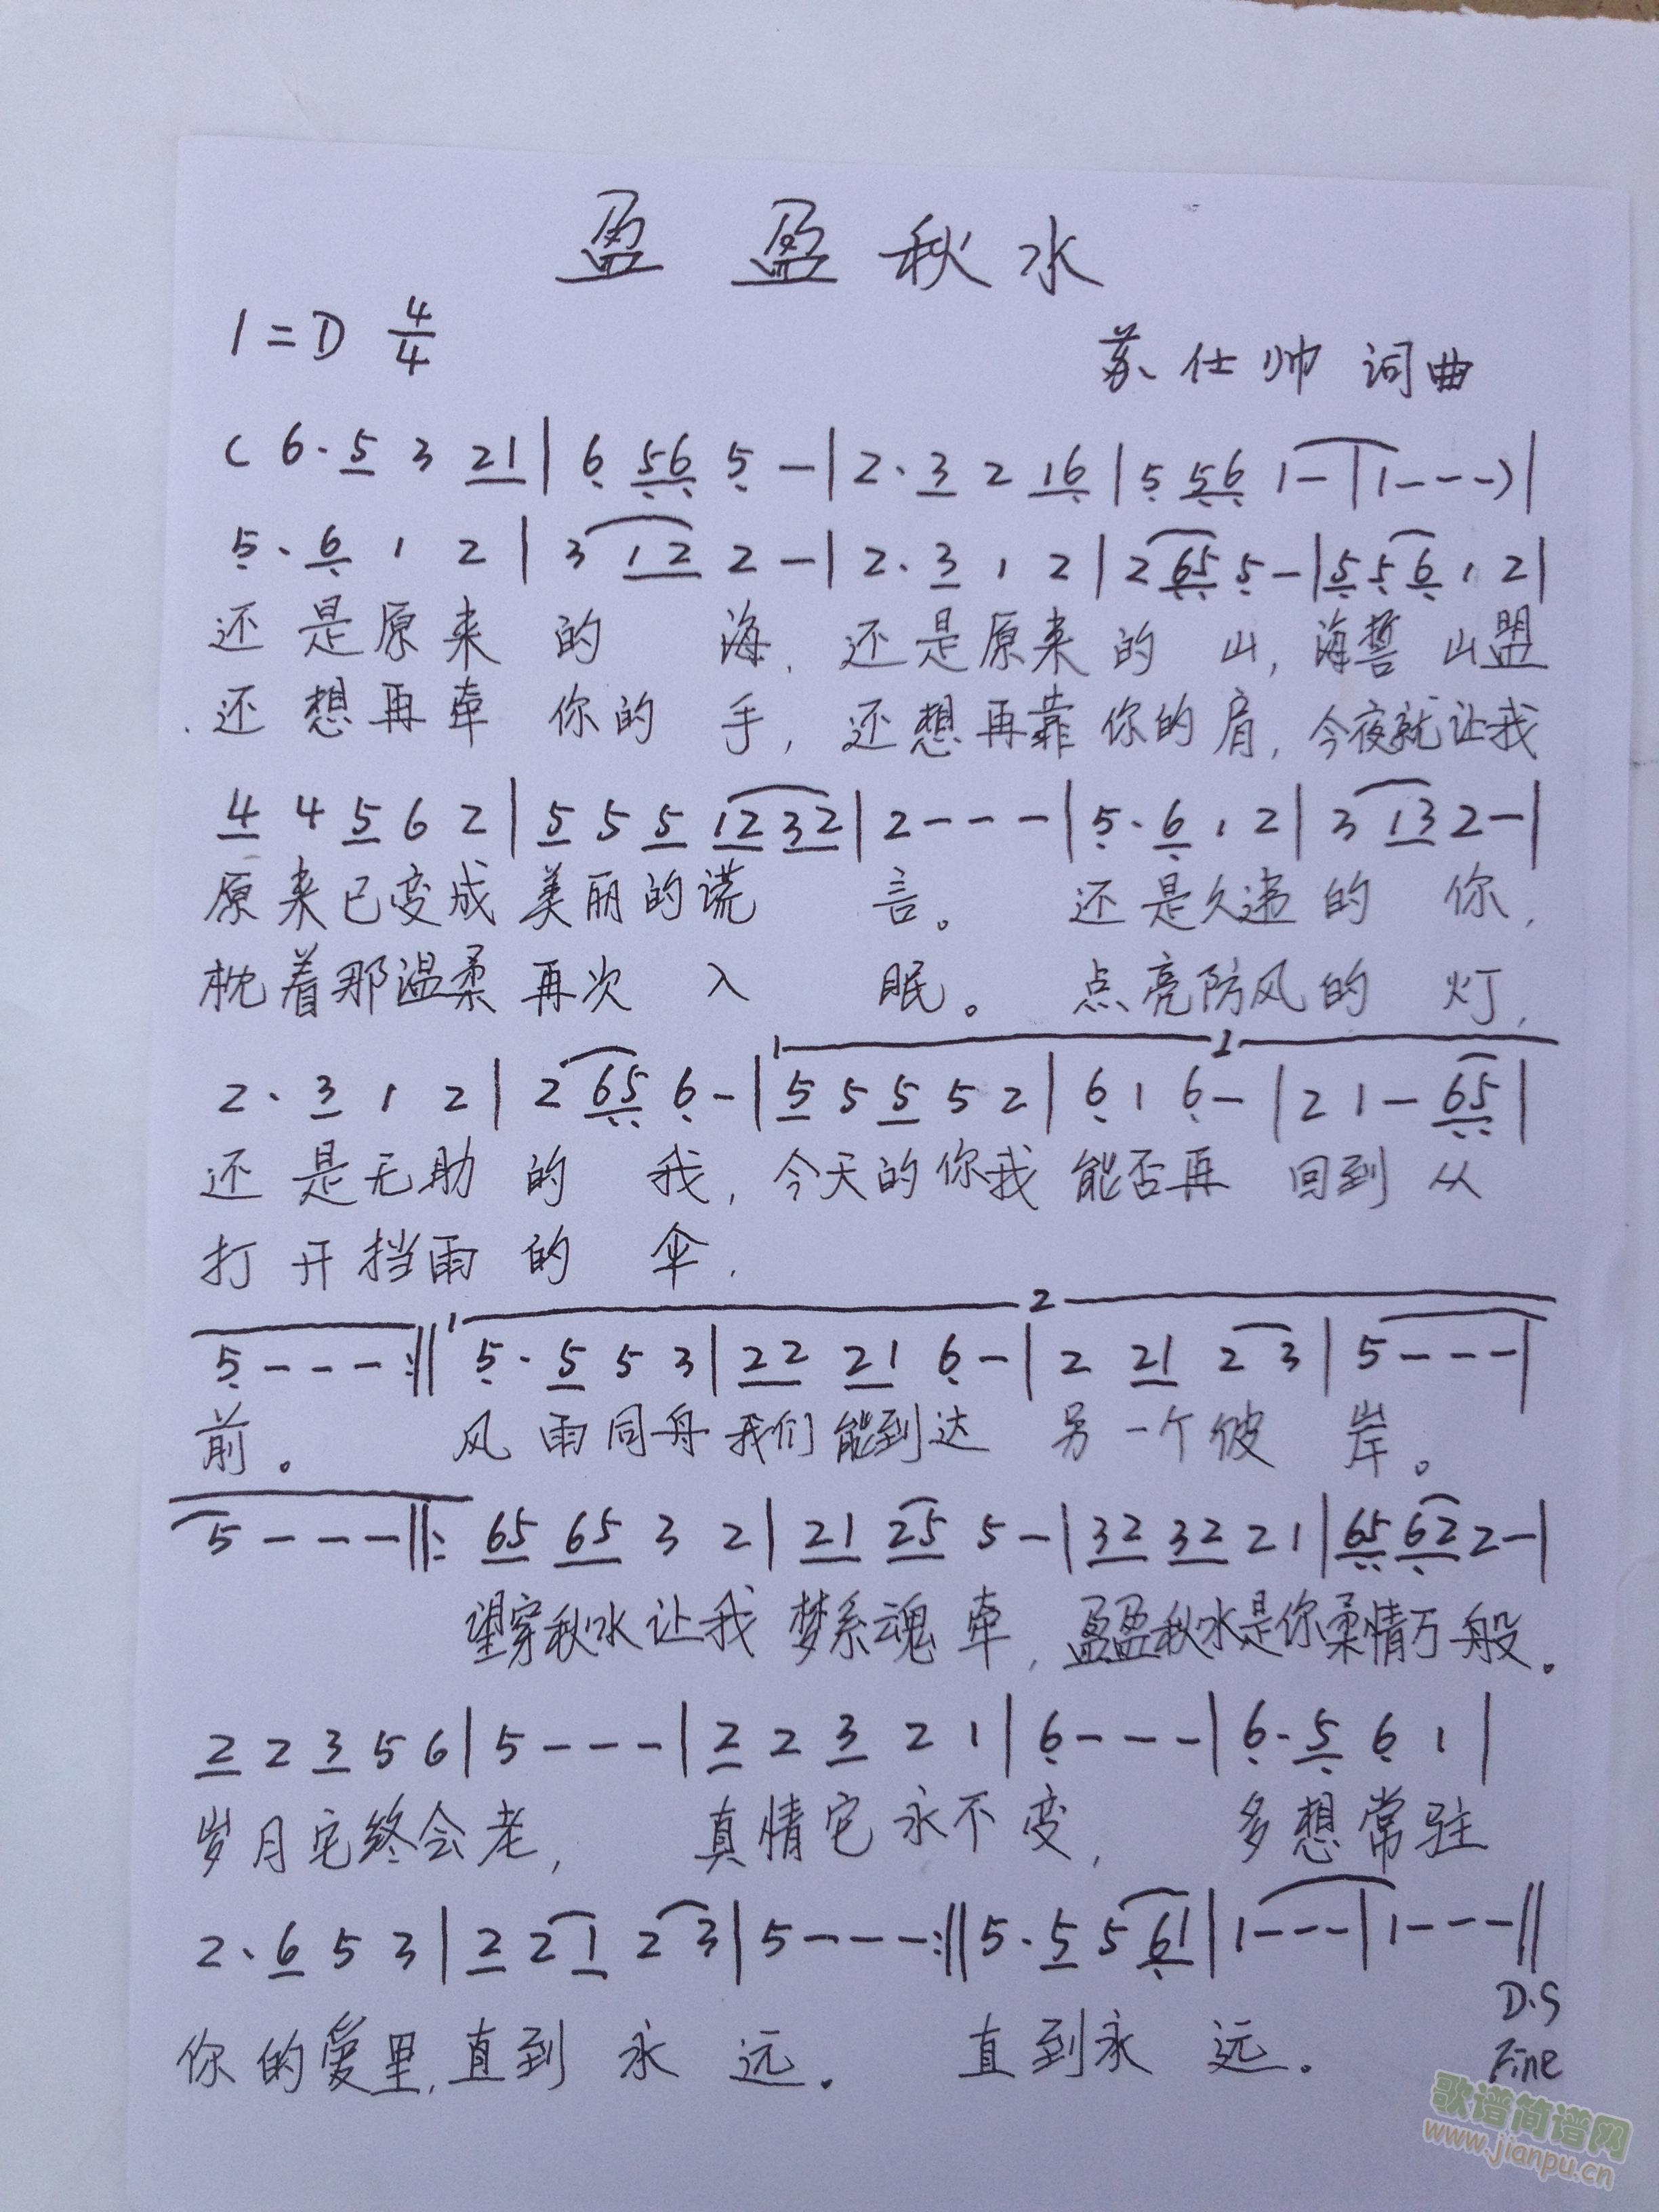 盈盈秋水
1=D 4/4
苏仕帅 词曲
( 6· 5 3 21 | 6 56 5 — | 2· 3 2 16 | 5 56 1 — | 1 - - - ) |
5· 6 1 2 | 3 12 2 — | 2· 3 1 2 | 2 65 5 — | 5 5 6 1 2 |
还是原来的海,还是原来的山,海誓山盟
还想再牵你的手,还想再靠你的肩,今夜就让我
4 4 5 6 2 | 5 5 5 12 32 | 2 - - - | 5· 6 1 2 | 3 13 2 — |
原来已变成美丽的谎言。还是久违的你,
枕着那温柔再次入眠。点亮防风的灯,
1
2· 3 1 2 | 2 65 6 — | 5 5 5 5 2 | 6 1 6 — | 2 1 — 65 |
还是无助的我,今天的你我能否再回到从
打开挡雨的伞,
2
5 - - - :‖ 5· 5 5 3 | 22 21 6 — | 2 21 2 3 | 5 - - - |
前。风雨同舟我们能到达另一个彼岸。
5 - - - ‖: 65 65 3 2 | 21 25 5 — | 32 32 2 1 | 65 62 2 — |
望穿秋水让我梦系魂牵,盈盈秋水是你柔情万般。
2 2 3 5 6 | 5 - - - | 2 2 3 2 1 | 6 - - - | 6· 5 6 1 |
岁月它终会老,真情它永不变,多想常驻
2· 6 5 3 | 2 2 1 2 3 | 5 - - - :‖ 5· 5 5 61 | 1 - - - | 1 - - - ‖
D.S
你的爱里,直到永远。直到永远。
Fine
歌谱简谱网
www.jianpu.cn